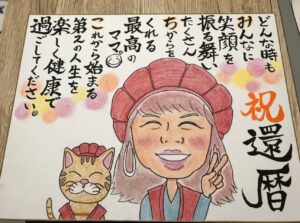 どんな時も
みんなに
笑顔を
振る舞い
たくさん
ちからを
くれる
最高の
ママ。
これから始まる
第二の人生を
楽しく健康で
過ごしてください。
祝還暦